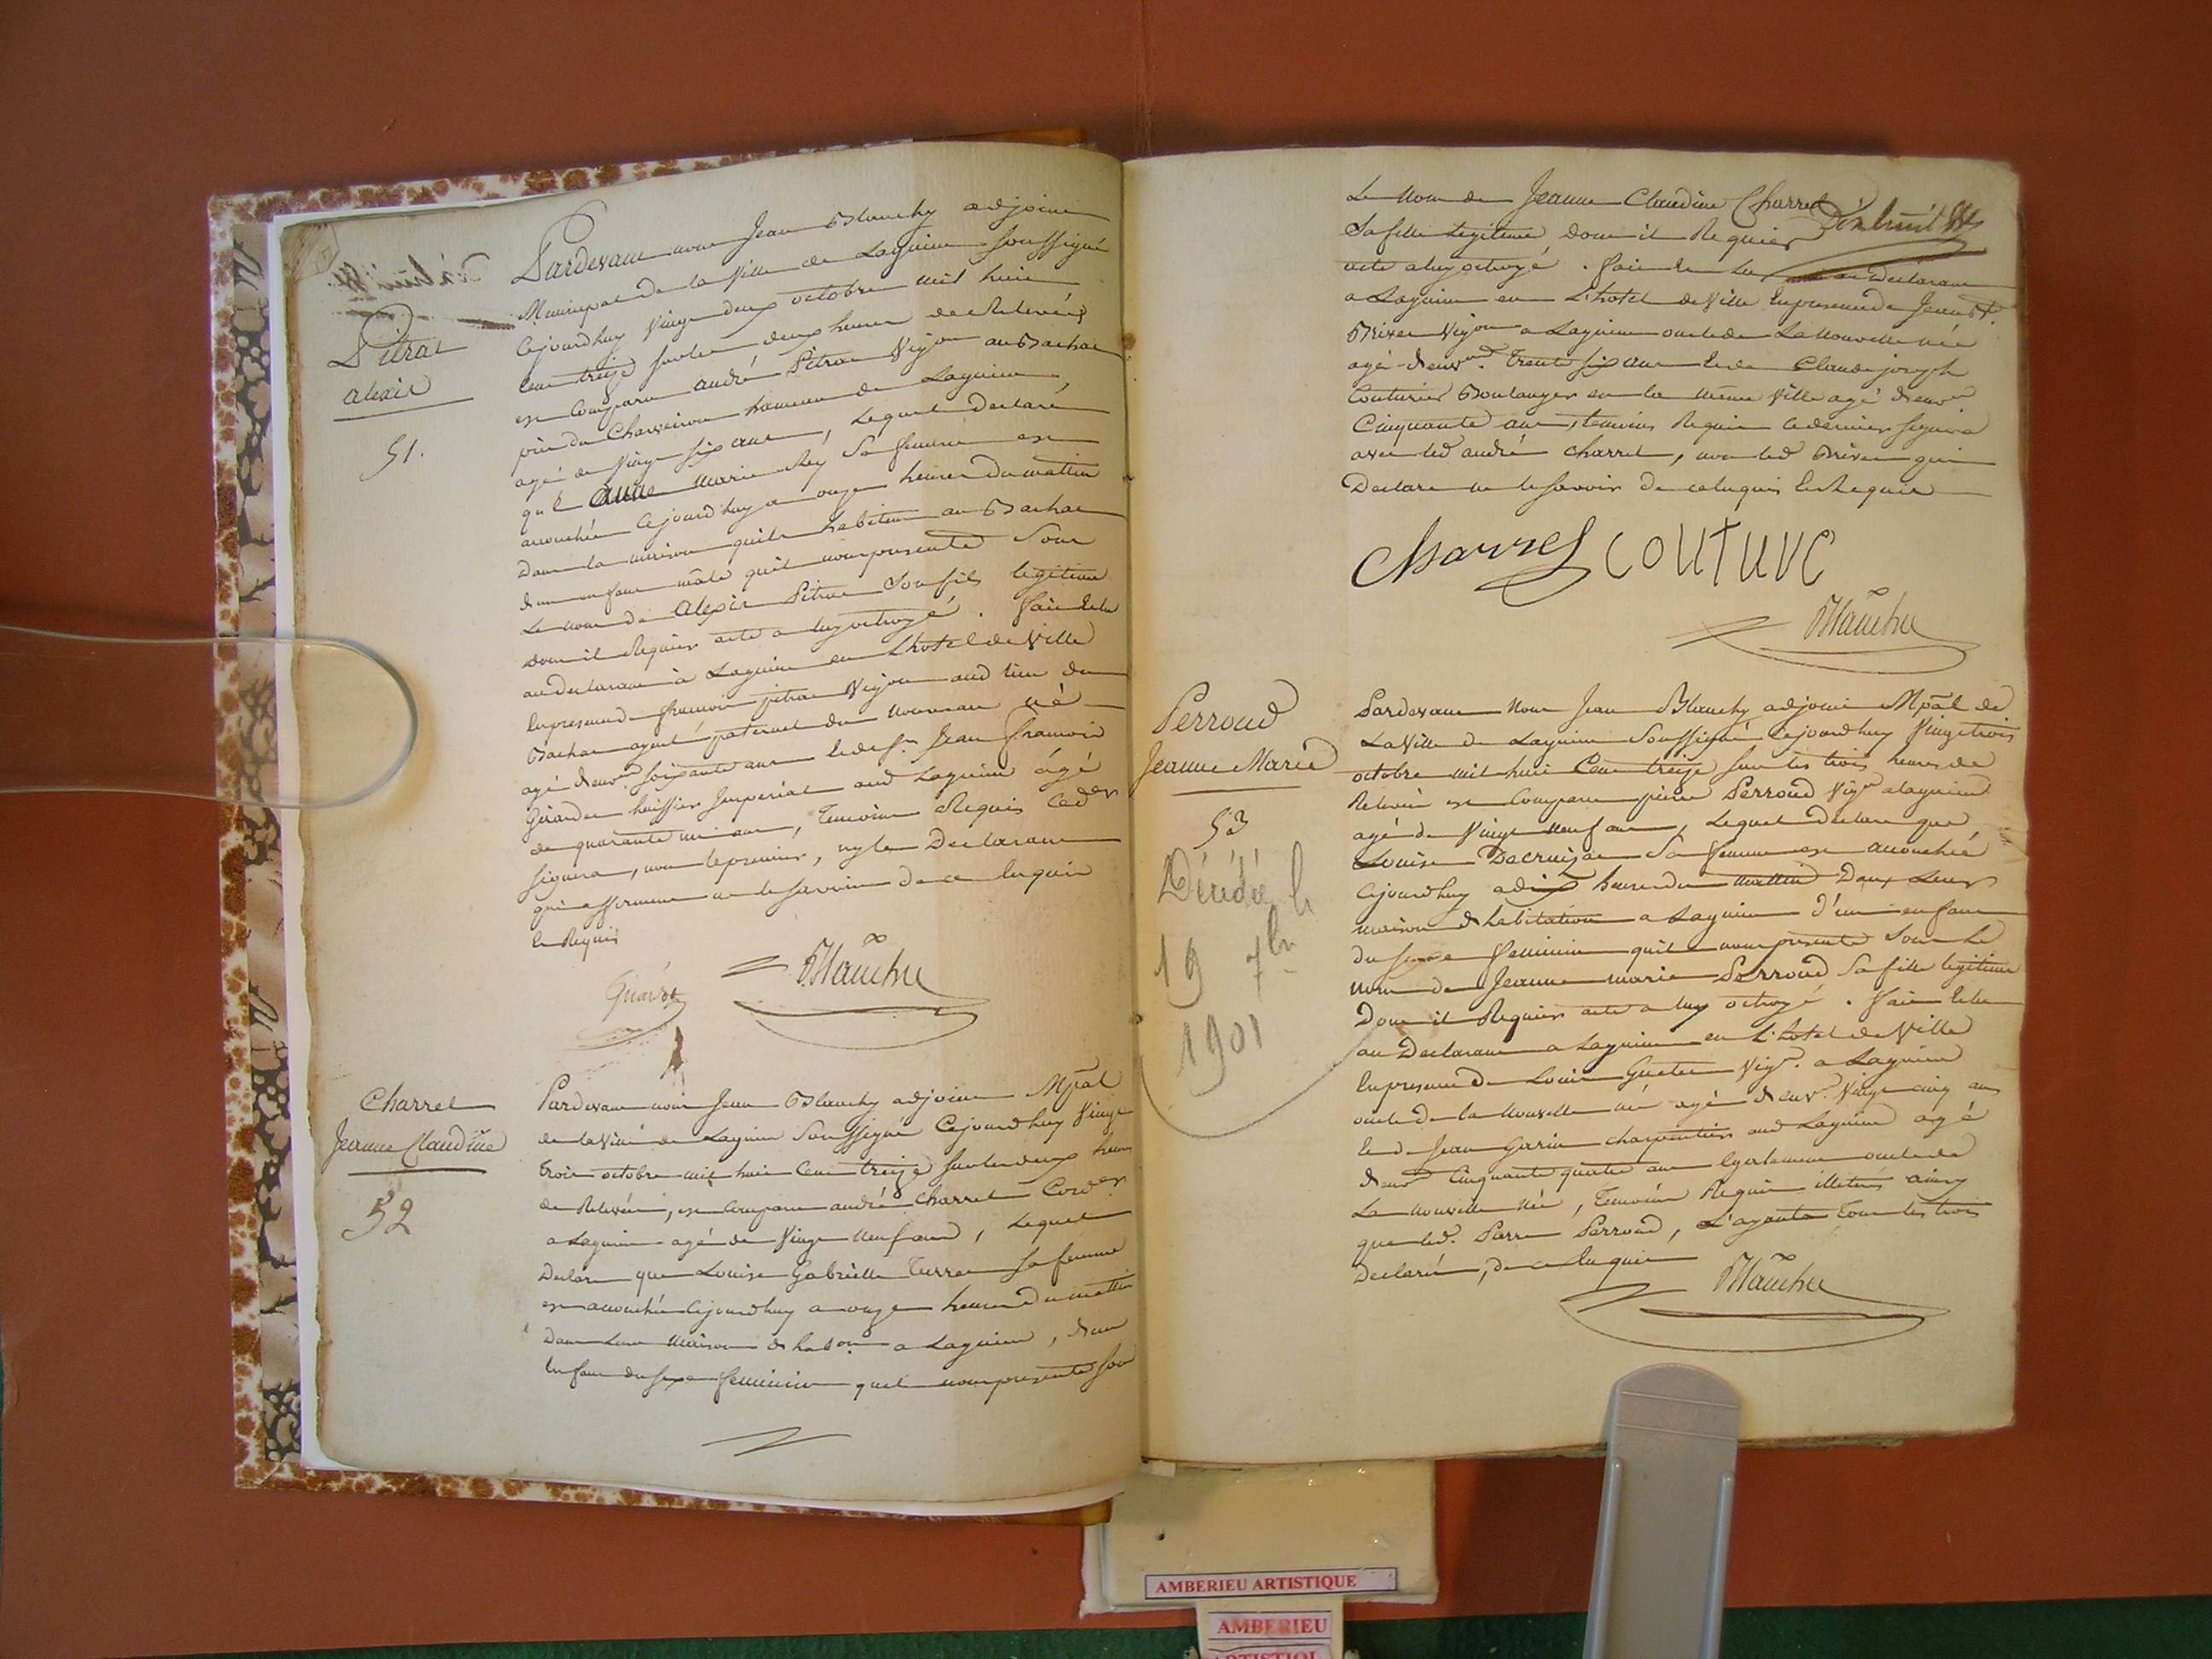 Pitrat
alexis
51.
Pardevant nous Jean Blanchy adjoint
Municipal de la Ville de Lagnieu soussigné
Cejourd'huy Vingt deux octobre mil huit
Cent treize sur les deux heures de Relevée
est Comparu andré Pitrat Vigon au Bachas
agé de Vingt six ans, Lequel declare
que anne Marie Rey Sa femme est
accouchée Cejourd'huy a onze heures du mattin
Dans la maison quils habitent au Bachas
d'un enfant mâle quil nous presente Sous
Le nom de Alexis Pitrat Son fils legitime
dont il Requier acte a luy octroyé. Fait et lu
au declarant à Lagnieu en L'hotel de Ville
En presence de françois pitrat Vigon aud lieu du
Bachas ayeul paternel du nouveau né
agé d'env.on soixante ans et de s.r Jean françois
Girardet huissier Imperial aud Lagnieu âgé
de quarante un ans, Temoins Requis Ce d.er
signera, non le premier, ny le Declarant
qui affirment ne le savoir de ce Enquis
et Requis
Blanchy
Charret
Jeanne Claudine
52
Pardevant nous Jean Blanchy adjoint Mpāl
de la Ville de Lagnieu Soussigné Cejourd'huy Vingt
trois octobre mil huit Cent treize sur les deux heures
de Relevée, est Comparu andré Charret Cord.er
a Lagnieu agé de Vingt Neuf ans, Lequel
Declare que Louise Gabrielle sa femme
est accouchée Cejourd'huy a onze heures du mattin
Dans Leur Maison d'hab.on a Lagnieu, d'un
Enfant du sexe feminin quil nous presente sous
Le Nom de Jeanne Claudine Charret
Sa fille Legitime, dont il Requier
acte a luy octroyé. Fait et Lu au Declarant
a Lagnieu en L'hotel de Ville En presence de Jean B.te
Vigon a Lagnieu oncle de La Nouvelle née
agé d'env.on Trente six ans et de Claude joseph
Couturier Boulanger en la même Ville agé d'env.on
Cinquante ans, temoins Requis Ce dernier signera
avec led andré charret, non led qui
Declare ne le savoir de ce Enquis et Requis
Charret COUTURE
Blanchy
Perroud
Jeanne Marie
53
Décédée le
19 7bre
1901
Pardevant Nous Jean Blanchy adjoint Mpāl de
La Ville de Lagnieu Soussigné Cejourd'huy Vingt trois
octobre mil huit Cent treize sur les trois heures de
Relevée est Comparu pierre Perroud Vig.on a Lagnieu
agé de Vingt neuf ans, Lequel Declare que
Louise Sa femme est accouchée
Cejourd'huy a dix heures du mattin Dans Leur
maison d'habitation a Lagnieu d'un enfant
du sexe feminin quil nous presente sous Le
nom de Jeanne marie Perroud Sa fille legitime
Dont il Requier acte a luy octroyé. Fait et lu
au Declarant a Lagnieu en L'hotel de Ville
En presence de Louis Vig.on a Lagnieu
oncle de la Nouvelle née agé d'env.on Vingt cinq ans
et de Jean Garin charpentier aud Lagnieu agé
d'env.on Cinquante quatre ans Egalement oncle de
La Nouvelle Née, Temoins Requis illeterés ainsy
que led. Pierre Perroud, L'ayants Tous les trois
Declaré, de ce Enquis
Blanchy
AMBERIEU ARTISTIQUE
AMBERIEU